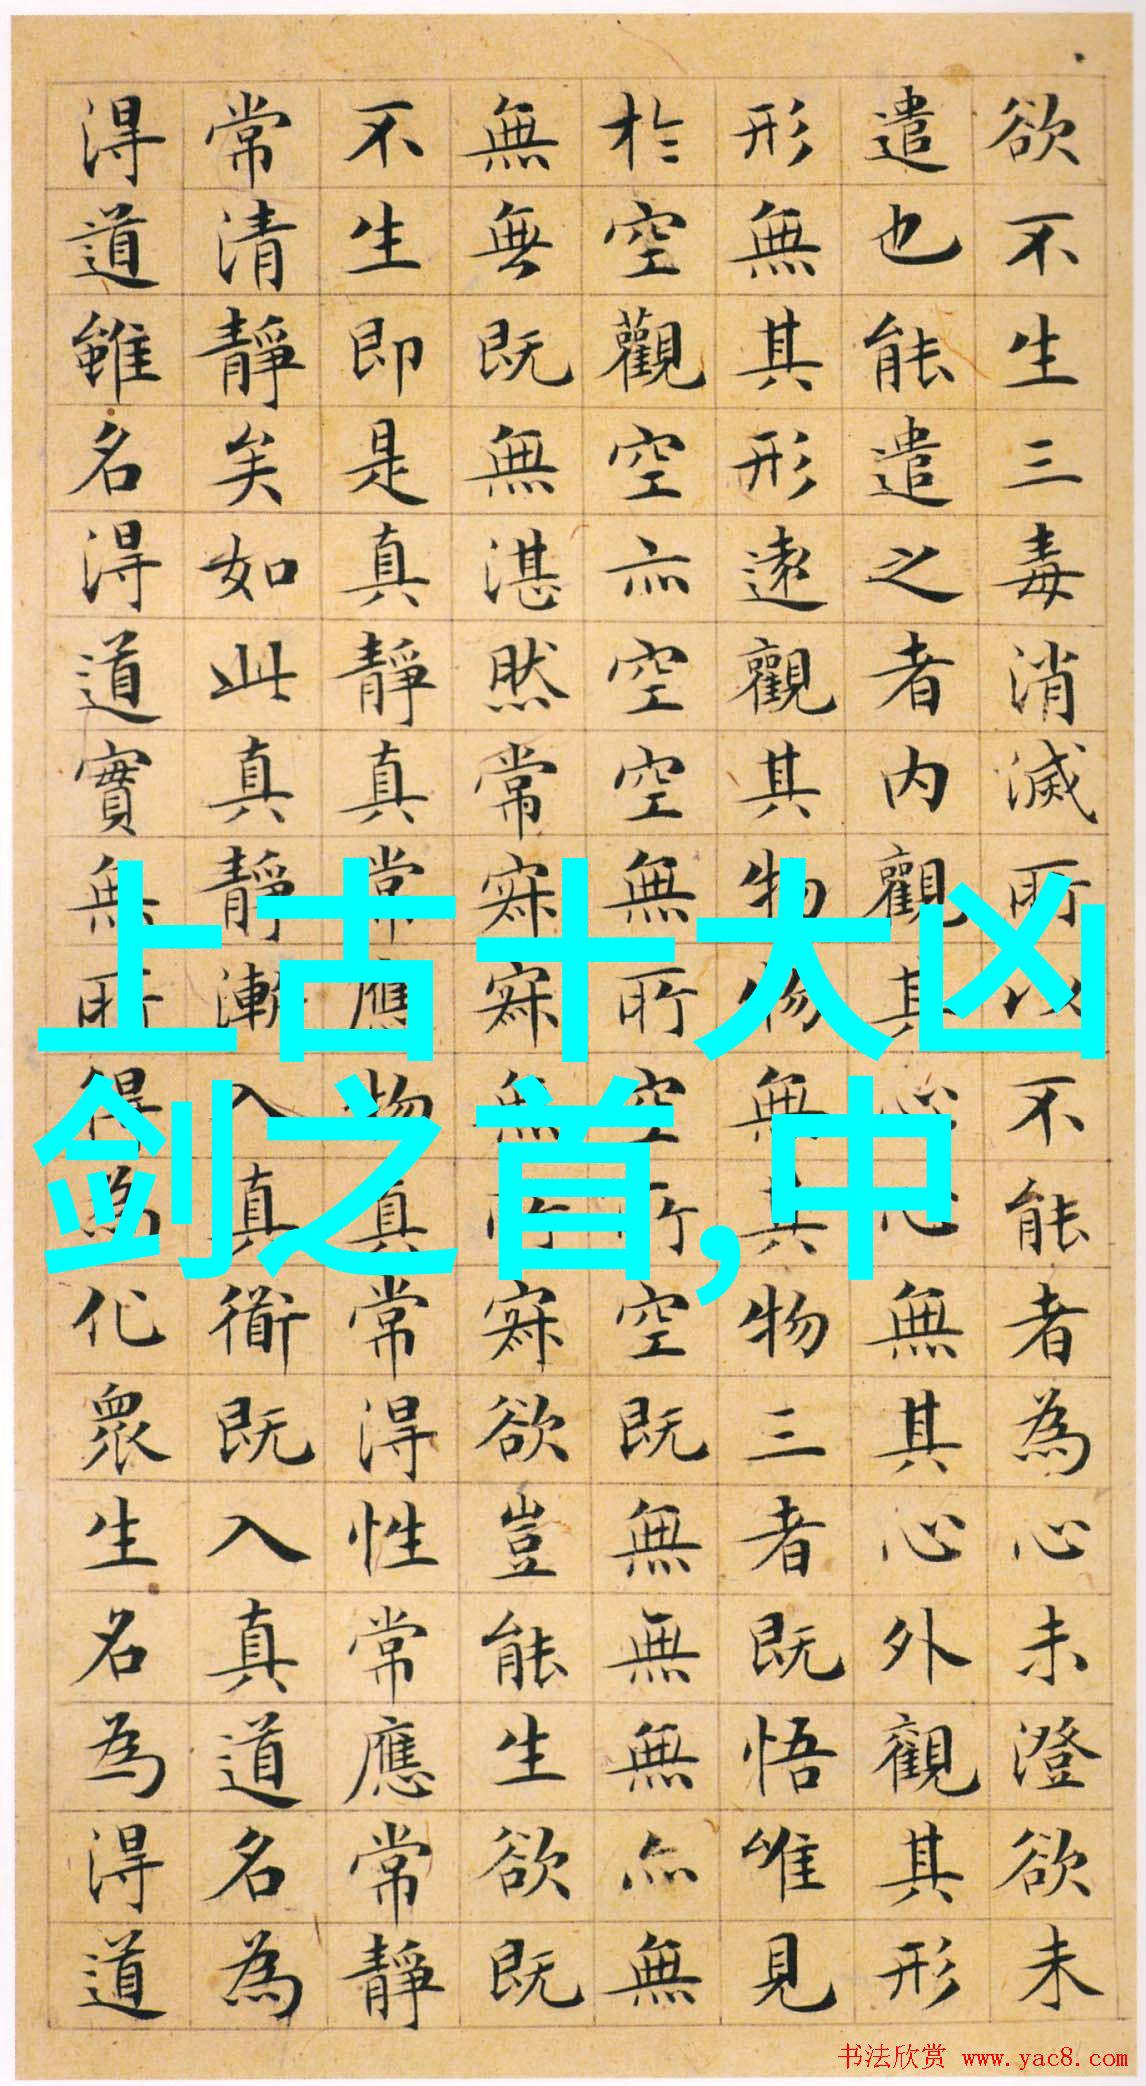 欲不生三毒消滅所以不能者為心未澄欲未
遣也能遣之者内觀其心心無其心外觀其形
形無其形遠觀其物物無其物三者既悟唯見
於空觀空亦空空無所空所空既無無無亦無
無無既無湛然常寂寂無所寂欲豈能生欲既
不生即是真靜真常應物真常得性常應常靜
常清靜矣如此真靜漸入真衜既入真道名為
得道雖名得道實無所得為化眾生名為得道
上古十大凶
剑之首,中
书法欣赏 www.yac8.com